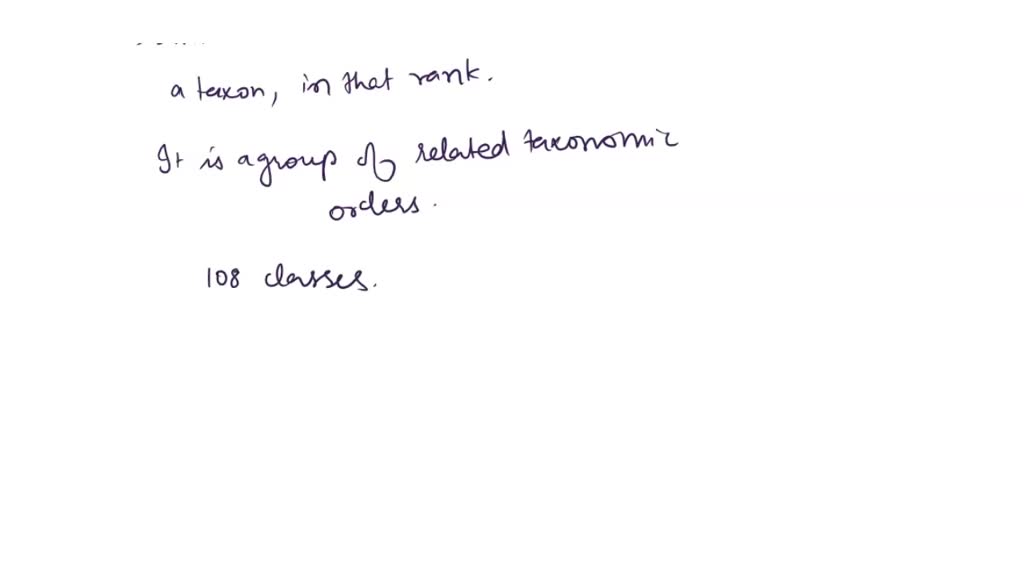 a taxon, in that rank.
It is a group of related taxonomic
orders.
108 classes.